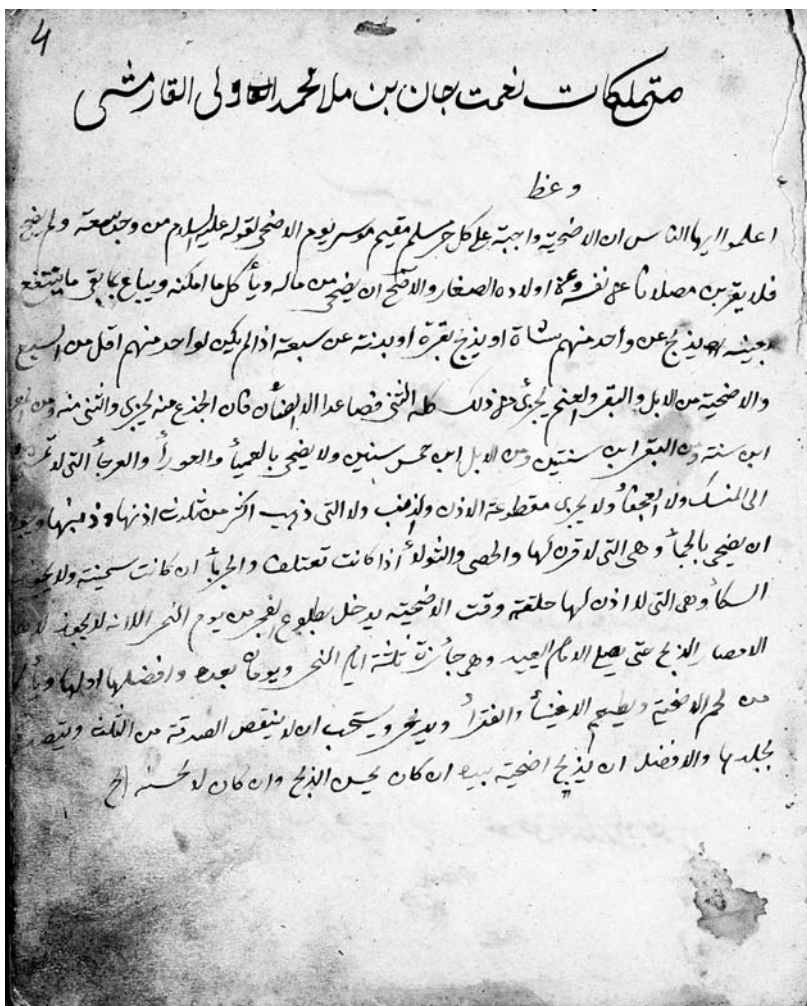 4
متملكات نعمت جان بن ملا محمد ولى القارمشى
وعظ
اعلموا ايها الناس ان الاضحية واجبة على كل حر مسلم مقيم موسر يوم الاضحى لقوله عليه السلام من وجد سعة ولم يضح
فلا يقربن مصلانا عن نفسه وعن اولاده الصغار والاصح ان يضحى من ماله ويأكل ما امكنه ويباع بما بقى ما ينتفع
بعينه يذبح عن واحد منهم شاة او يذبح بقرة او بدنة عن سبعة اذا لم يكن لواحد منهم اقل من السبع
والاضحية من الابل والبقر والغنم يجزئ من ذلك كله الثنى فصاعدا الا الضأن فان الجذع منه يجزى والثنى منه ومن
ابن سنة ومن البقر ابن سنتين ومن الابل ابن خمس سنين ولا يضحى بالعميأ والعورأ والعرجأ التى لا تمشى
الى المنسك ولا العجفأ ولا يجزى مقطوعة الاذن والذنب ولا التى ذهب اكثر من ثلث اذنها وذنبها
ان يضحى بالجمأ وهى التى لا قرن لها والخصى والثولأ اذا كانت تعتلف والجربأ ان كانت سمينة ولا يجوز
السكأ وهى التى لا اذن لها خلقة وقت الاضحية يدخل بطلوع الفجر من يوم النحر الا انه لا يجوز لاهل
الامصار الذبح حتى يصلى الامام العيد وهى جأئزة ثلثة ايام النحر ويومان بعده وافضلها اولها ويأكل
من لحم الاضحية ويطعم الاغنيأ والفقرأ ويدخر ويستحب ان لا ينقص الصدقة من الثلث ويتصدق
بجلدها والافضل ان يذبح اضحيته بيده ان كان يحسن الذبح وان كان لا يحسنه الخ